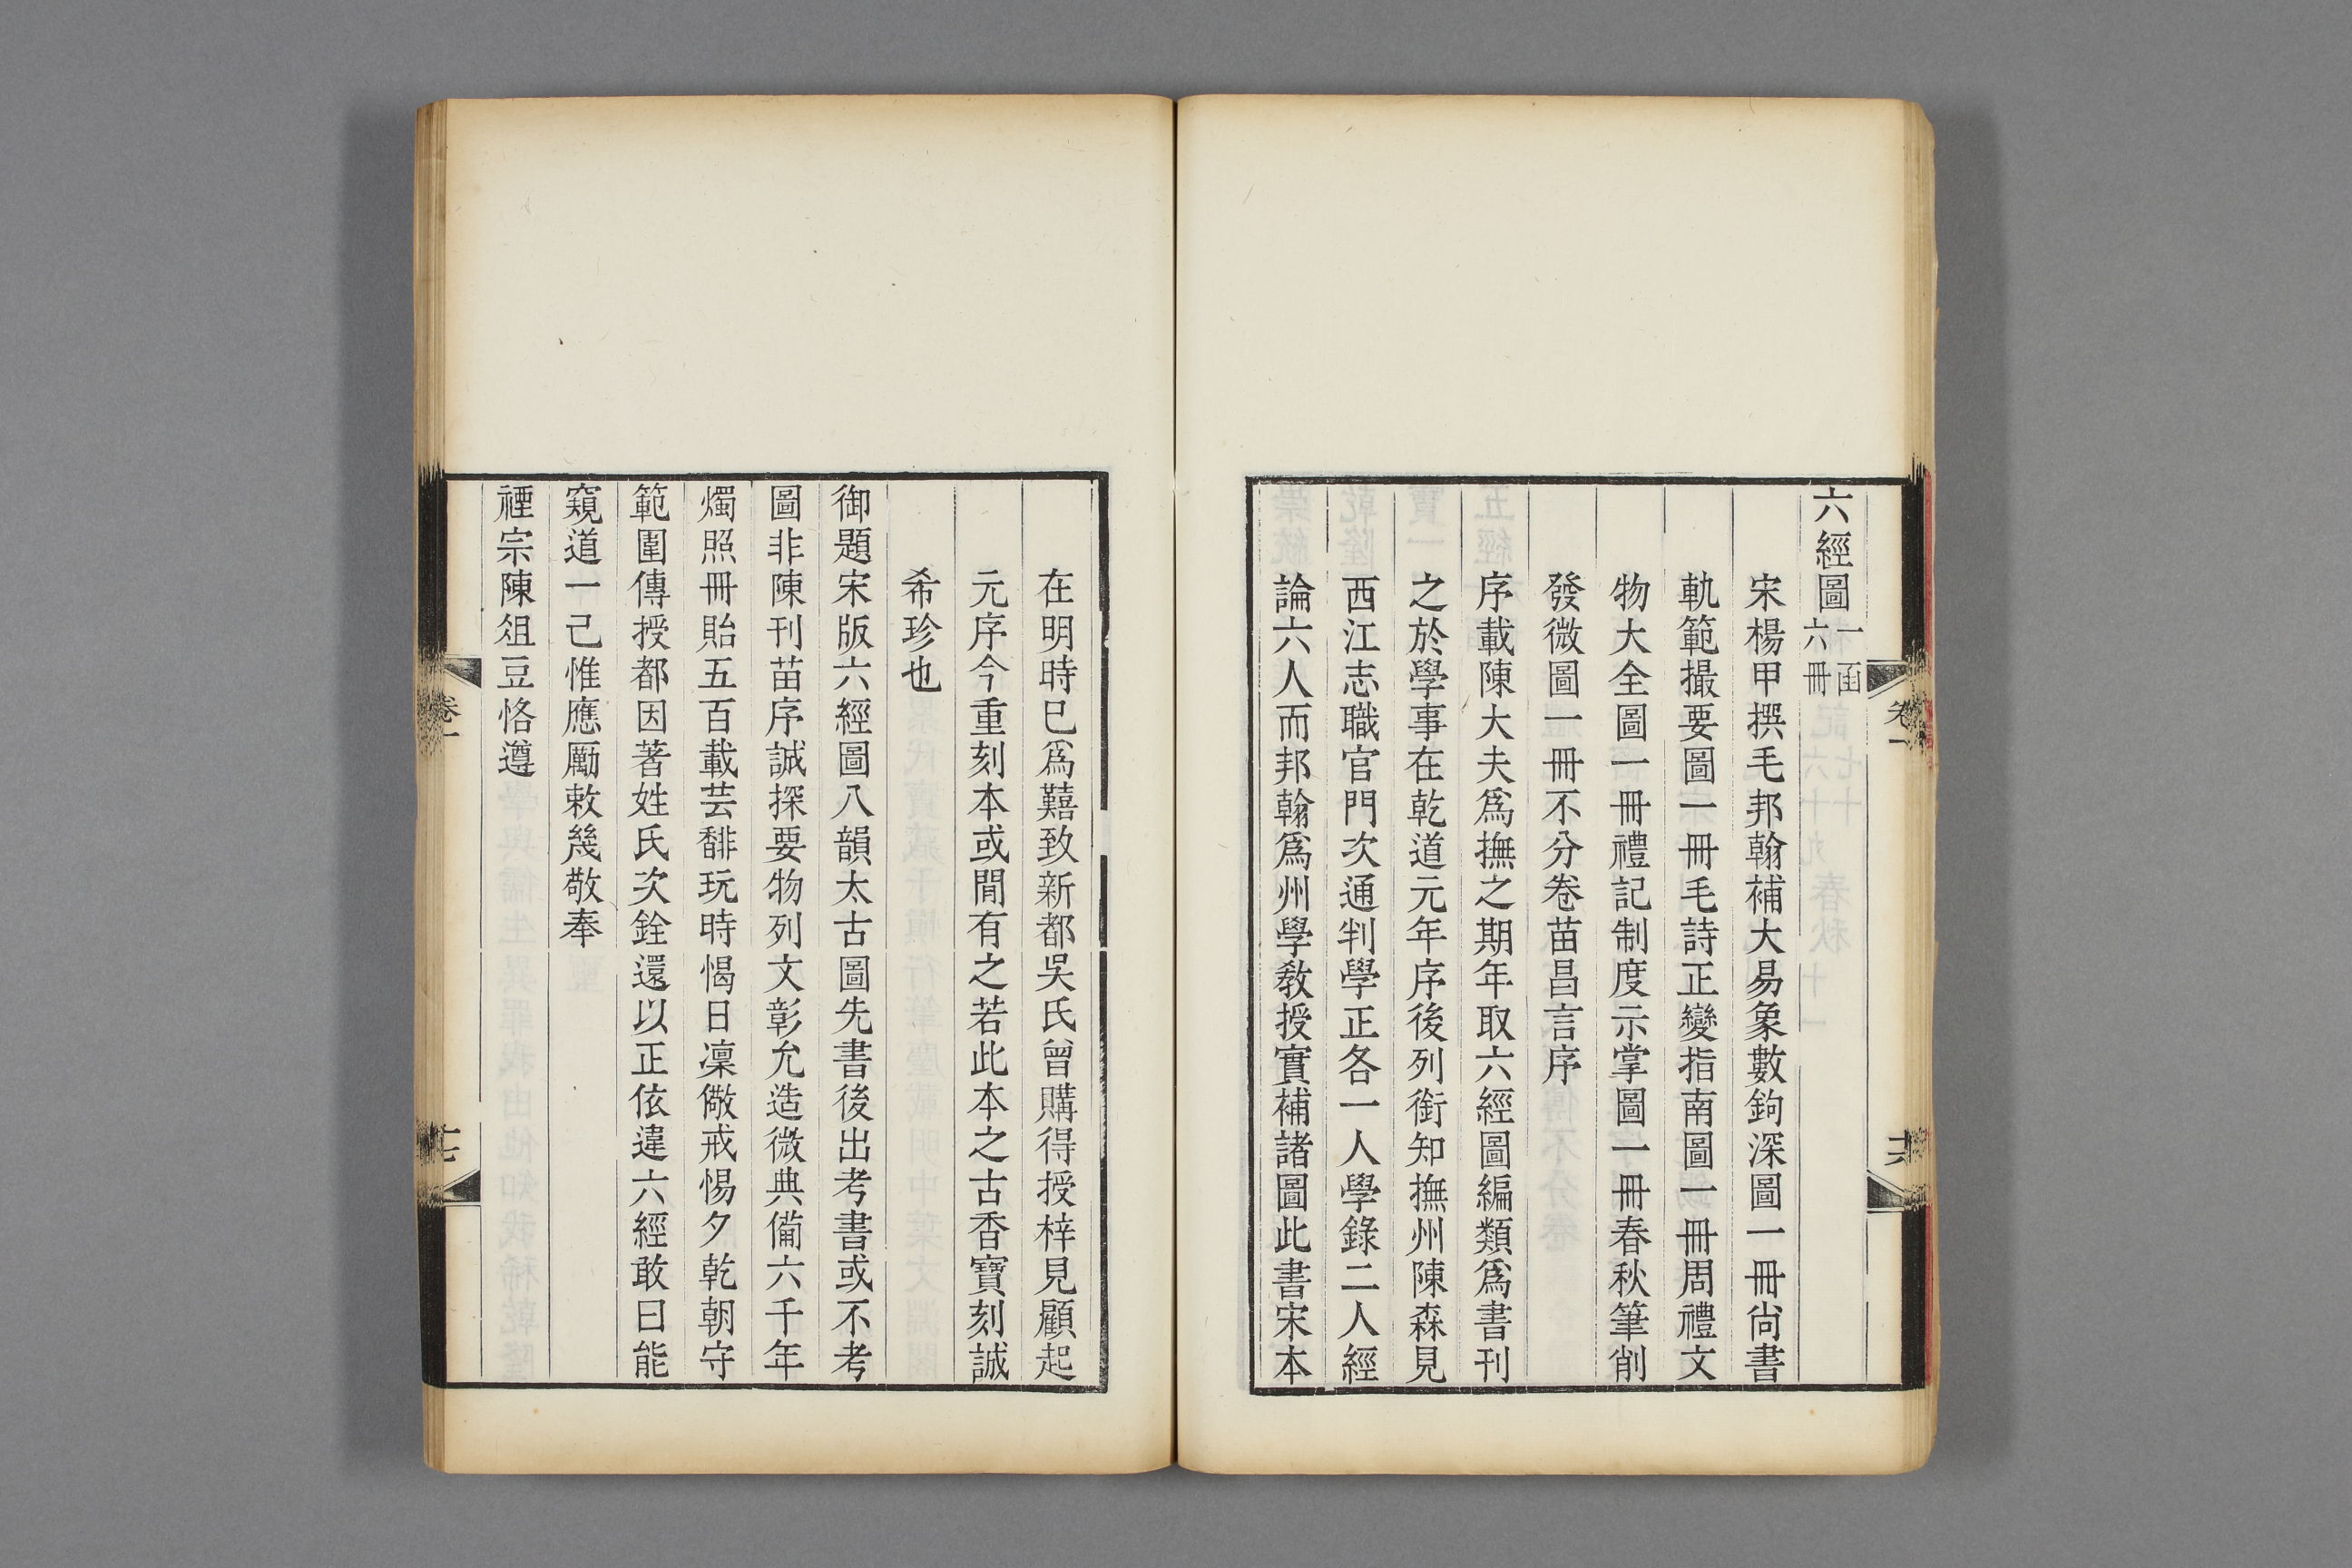 六經圖一函六冊
宋楊甲撰毛邦翰補大易象數鉤深圖一冊尙書
軌範撮要圖一冊毛詩正變指南圖一冊周禮文
物大全圖一冊禮記制度示掌圖一冊春秋筆削
發微圖一冊不分卷苗昌言序
序載陳大夫爲撫之期年取六經圖編類爲書刊
之於學事在乾道元年序後列銜知撫州陳森見
西江志職官門次通判學正各一人學錄二人經
論六人而邦翰爲州學敎授實補諸圖此書宋本
在明時已爲囏致新都吳氏曾購得授梓見顧起
元序今重刻本或閒有之若此本之古香寶刻誠
希珍也
御題宋版六經圖八韻太古圖先書後出考書或不考
圖非陳刊苗序誠探要物列文彰允造微典備六千年
燭照冊貽五百載芸馡玩時愒日凜儆戒惕夕乾朝守
範圍傳授都因著姓氏次銓還以正依違六經敢曰能
窺道一己惟應勵敕幾敬奉
禋宗陳俎豆恪遵
卷一
卷一